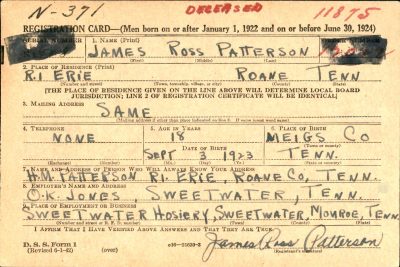 N-371
DECEASED
11875
REGISTRATION CARD—(Men born on or after January 1, 1922 and on or before June 30, 1924)
SERIAL NUMBER 1. NAME (Print)
JAMES ROSS PATTERSON
(First) (Middle) (Last)
2. PLACE OF RESIDENCE (Print)
R.1. ERIE ROANE TENN
(Number and street) (Town, township, village, or city) (County) (State)
[THE PLACE OF RESIDENCE GIVEN ON THE LINE ABOVE WILL DETERMINE LOCAL BOARD
JURISDICTION; LINE 2 OF REGISTRATION CERTIFICATE WILL BE IDENTICAL]
3. MAILING ADDRESS
SAME
[Mailing address if other than place indicated on line 2. If same insert word same]
4. TELEPHONE 5. AGE IN YEARS 6. PLACE OF BIRTH
NONE 18 MEIGS CO
DATE OF BIRTH (Town or county)
SEPT 3 1923 TENN.
(Exchange) (Number) (Mo.) (Day) (Yr.) (State or country)
7. NAME AND ADDRESS OF PERSON WHO WILL ALWAYS KNOW YOUR ADDRESS
H.M. PATTERSON R1. ERIE, ROANE CO, TENN.
8. EMPLOYER'S NAME AND ADDRESS
O.K. JONES, SWEETWATER, TENN.
9. PLACE OF EMPLOYMENT OR BUSINESS
SWEETWATER HOSIERY, SWEETWATER, MONROE, TENN.
(Number and street or R. F. D. number) (Town) (County) (State)
I AFFIRM THAT I HAVE VERIFIED ABOVE ANSWERS AND THAT THEY ARE TRUE.
D. S. S. Form 1
(Revised 6-1-42) (over)
James Ross Patterson
(Registrant's signature)